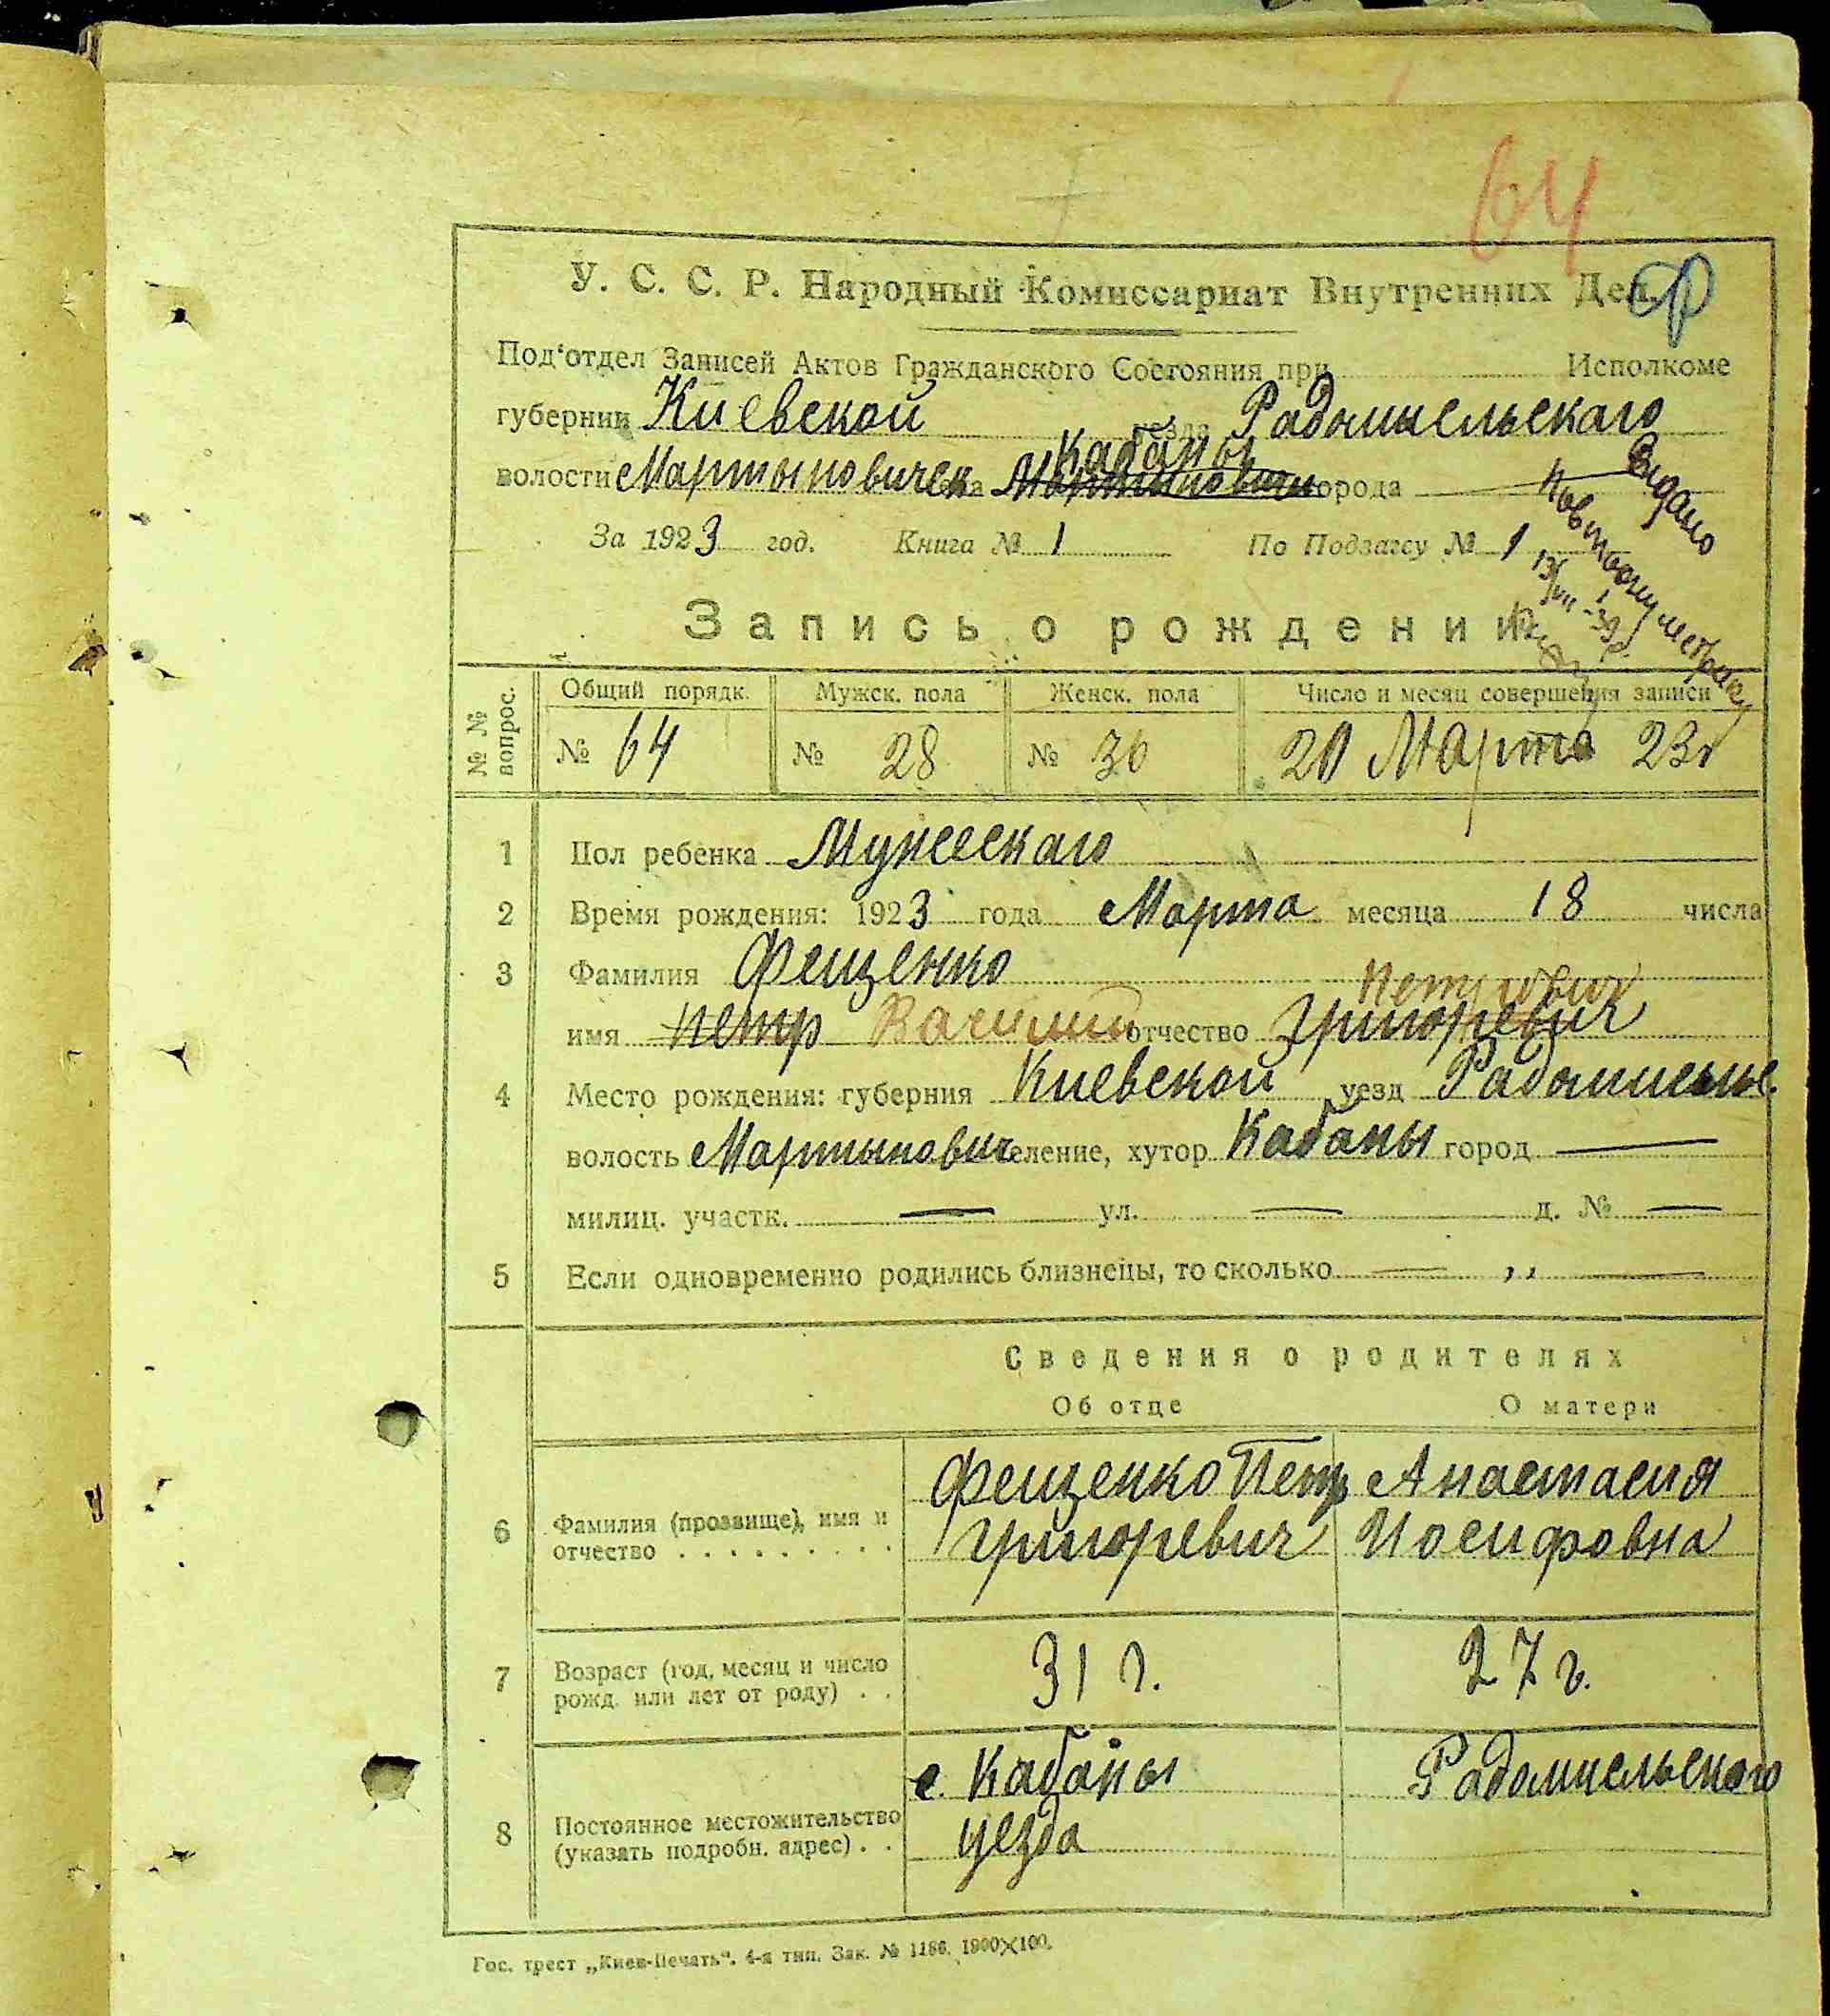 64
У. С. С. Р. Народный Комиссариат Внутренних Дел.
Под'отдел Записей Актов Гражданского Состояния при Исполкоме
губернии Киевской уезда Радомысльскаго
Кабаны
волости Мартыновичск села Мартыновичи города —
Видано
повторну метрику
За 1923 год. Книга № 1 По Подзагсу № 1
Запись о рождении
№ № вопрос. Общий порядк. Мужск. пола Женск. пола Число и месяц совершения записи
№ 64 № 28 № 36 20 Марта 23г
1 Пол ребенка Мужескаго
2 Время рождения: 1923 года Марта месяца 18 числа
3 Фамилия Фещенко
Петрович
имя Петр Василий отчество Григоревич
4 Место рождения: губерния Киевской уезд Радомысльс.
волость Мартынович селение, хутор Кабаны город —
милиц. участк. — ул. — д. № —
5 Если одновременно родились близнецы, то сколько — ,, —
Сведения о родителях
Об отце О матери
Фещенко Петр Анастасия
6 Фамилия (прозвище), имя и
отчество . . . . . . . . . Григоревич Иосифовна
7 Возраст (год, месяц и число
рожд. или лет от роду) . . 31 г. 27 г.
с. Кабаны Радомысльского
8 Постоянное местожительство
(указать подробн. адрес) . . уезда
Гос. трест „Киев-Печать“. 4-я тип. Зак. № 1186. 1900×100.